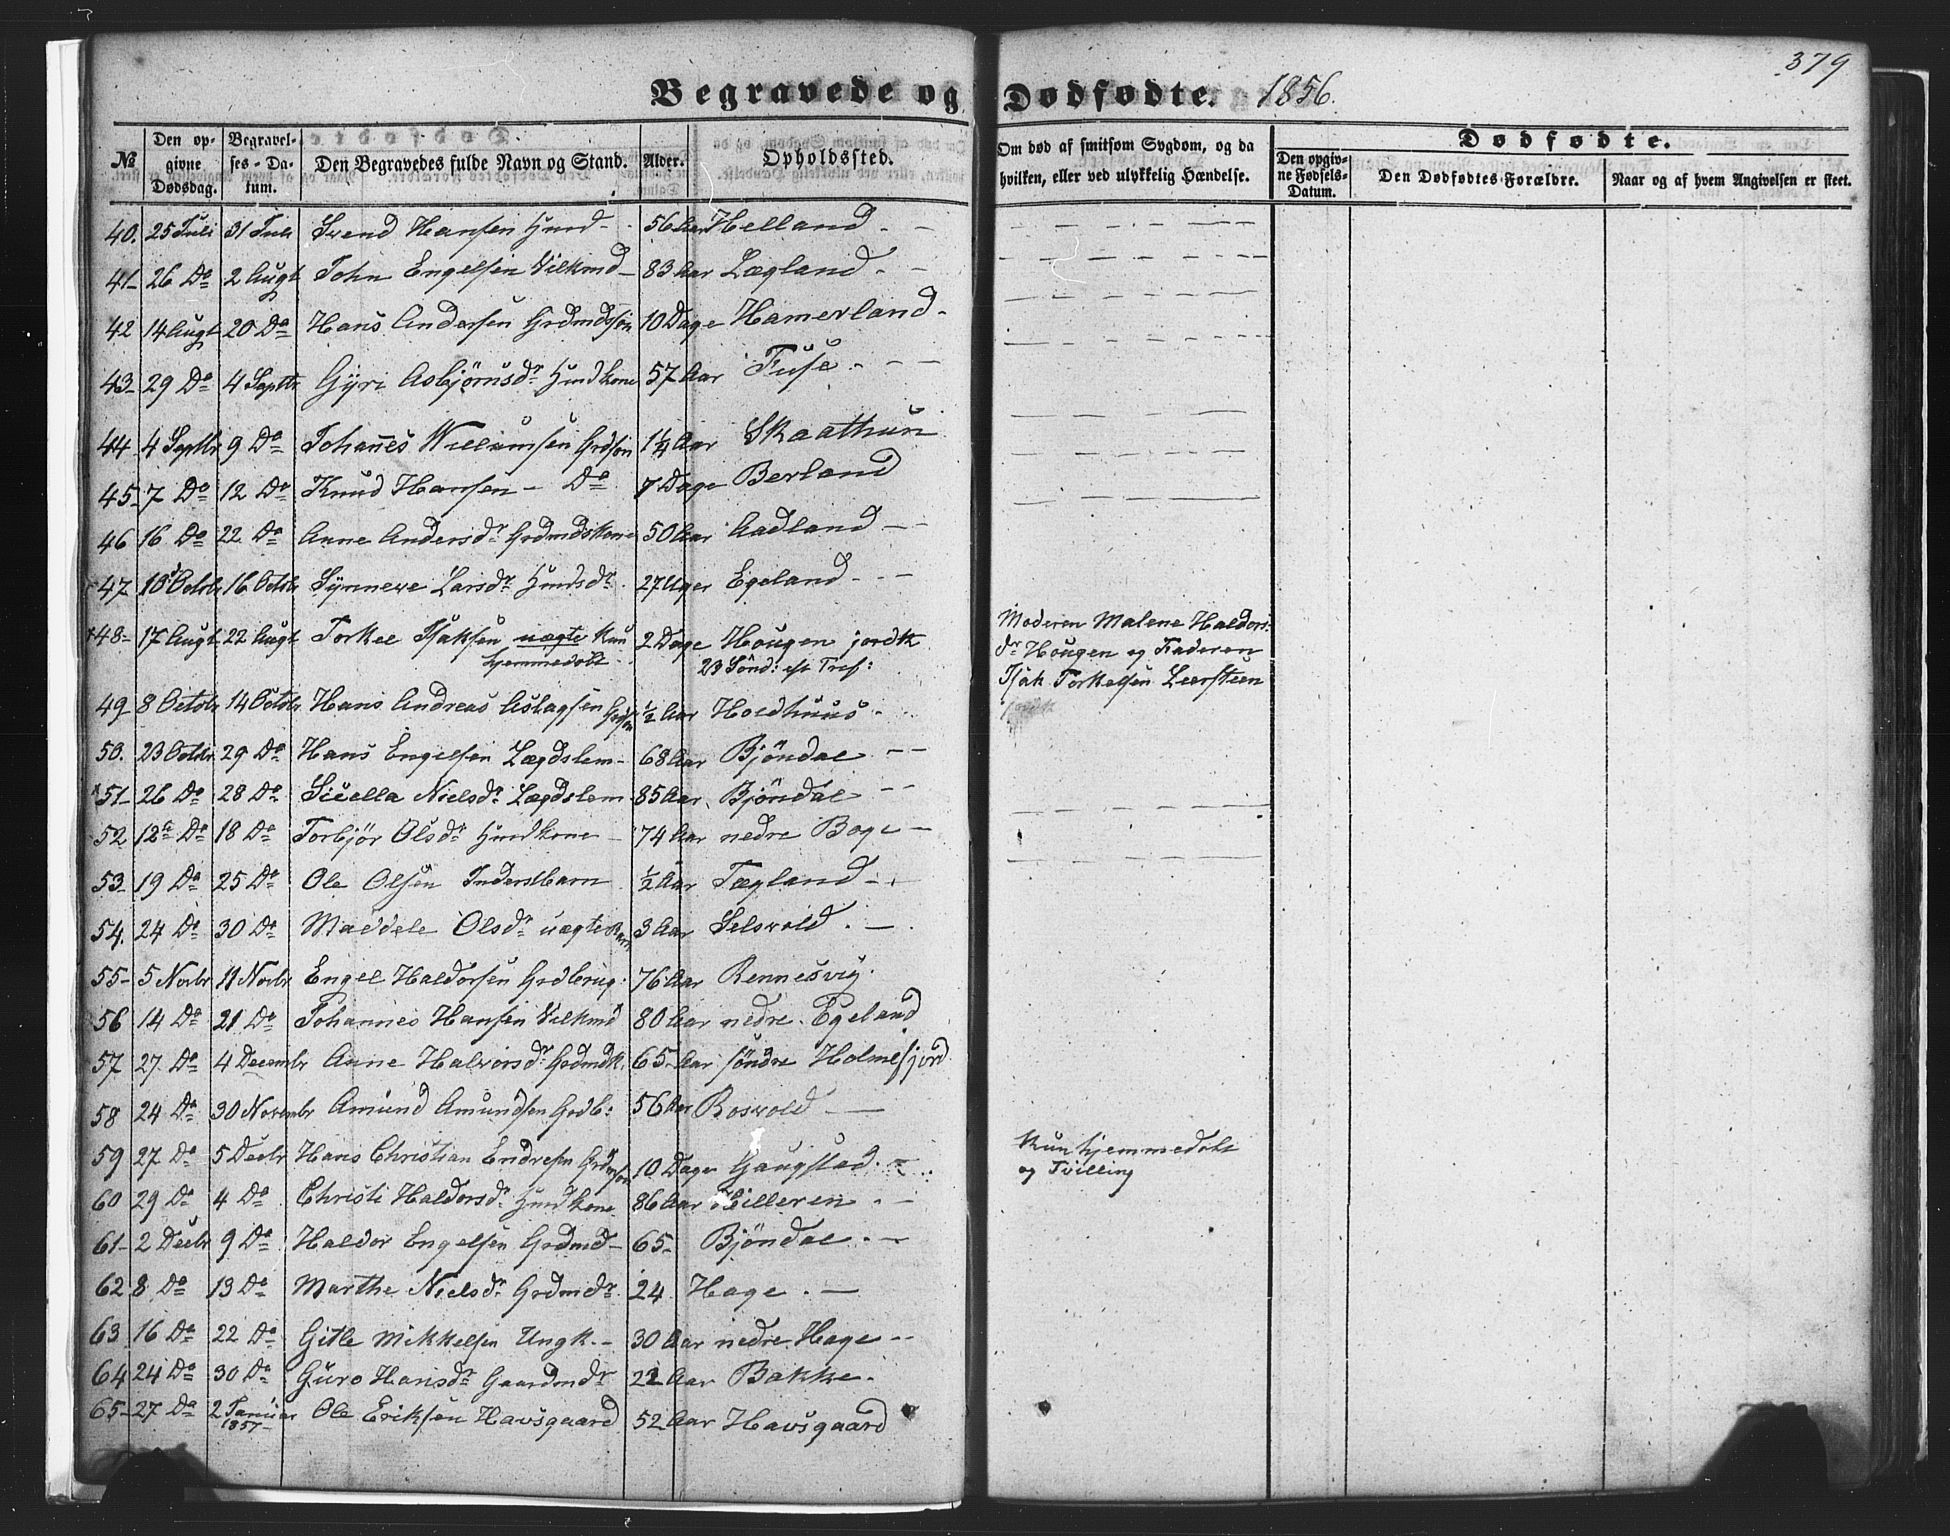 379
Begravede og Dødfødte. 1856.
№ Den opgivne Dødsdag. Begravelses-Datum. Den Begravedes fulde Navn og Stand. Alder. Opholdssted. Om død af smitsom Sygdom, og da hvilken, eller ved ulykkelig Hændelse. Dødfødte. Den opgivne Fødsels-Datum. Den Dødfødtes Forældre. Naar og af hvem Angivelsen er skeet.
40. 25 Juli 31 Juli Svend Hansen Huusmd - 56 Aar Helland - -
41- 26 Do 2 Augt John Engelsen Vilkmd - 83 Aar Lægland - -
42 14 Augt 20 Do Hans Andersen Grdmdssøn 10 Dage Hamerland -
43- 29 Do 4 Septbr Gÿri Asbjörnsdr Huusdkone 57 Aar Fuse - - -
44 4 Septbr 9 Do Johannes Willumsen Grdsøn 1¼ Aar Skaathun
45- 7 Do 12 Do Knud Hansen - Do 7 Dage Berland
46 16 Do 22 Do Anne Andersdr Grdmdskone 50 Aar Aadland - -
47 10 Octobr 16 Octobr Sÿnneve Larsdr Huusdr 27 Uger Egeland - - -
48- 17 Augt 22 Augt Torkel Isaksen uægte kun hjemmedøbt 2 Dage Hougen jordk 23 Sönd: eft Tref: Moderen Malene Haldorsdr Hougen og Faderen
Isak Torkelsen Leersteen
jordk
49 8 Octobr 14 Octobr Hans Andreas Aslagsen Grdsøn ½ Aar Holdhuus -
50. 23 Octobr 29 Do Hans Engelsen Lægdslem - 68 Aar Bjöndal - -
51- 26 Do 28 Do Sicella Nielsdr Lægdslem 85 Aar Bjöndal - -
52 12te Do 18 Do Torbjør Olsdr Huusdkone - 74 Aar nedre Boge -
53- 19 Do 25 Do Ole Olsen Inderstbarn ½ Aar Tægland - -
54. 24 Do 30 Do Maddele Olsdr uægte Barn 3 Aar Selsvold . - .
55- 5 Novbr 11 Novbr Engel Haldorsen Grdbrug. 76 Aar Rennesvig.
56 14 Do 21 Do Johannes Hansen Vilkmd 80 Aar nedre Egeland
57 27 Do 4 Decembr Anne Halvorsdr Grdmdk. 65- Aar söndre Holmefjord
58 24 Do 30 Novembr Amund Amundsen Grdb: 56 Aar Rosvold -
59 27 Do 5 Decbr Hans Christian Endresen Grdmsøn 10 Dage Gaugstad - - Kun hjemmedøbt
og Tvilling
60 29 Do 4 Do Christi Haldorsdr Huusdkone 86 Aar Hilleren - -
61- 2 Decbr 9 Do Haldor Engelsen Grdmd - 65- Bjöndal - -
62 8 Do 13 Do Marthe Nielsdr Grdmdr 24 Hage . -
63 16 Do 22 Do Gitle Mikkelsen Ungk. - 30 Aar nedre Hage - -
64 24 Do 30 Do Guro Hansdr Gaardmdr 22 Aar Bakke.
65- 27 Do 2 Januar 1857- Ole Eriksen Havsgaard 52 Aar Havsgaard